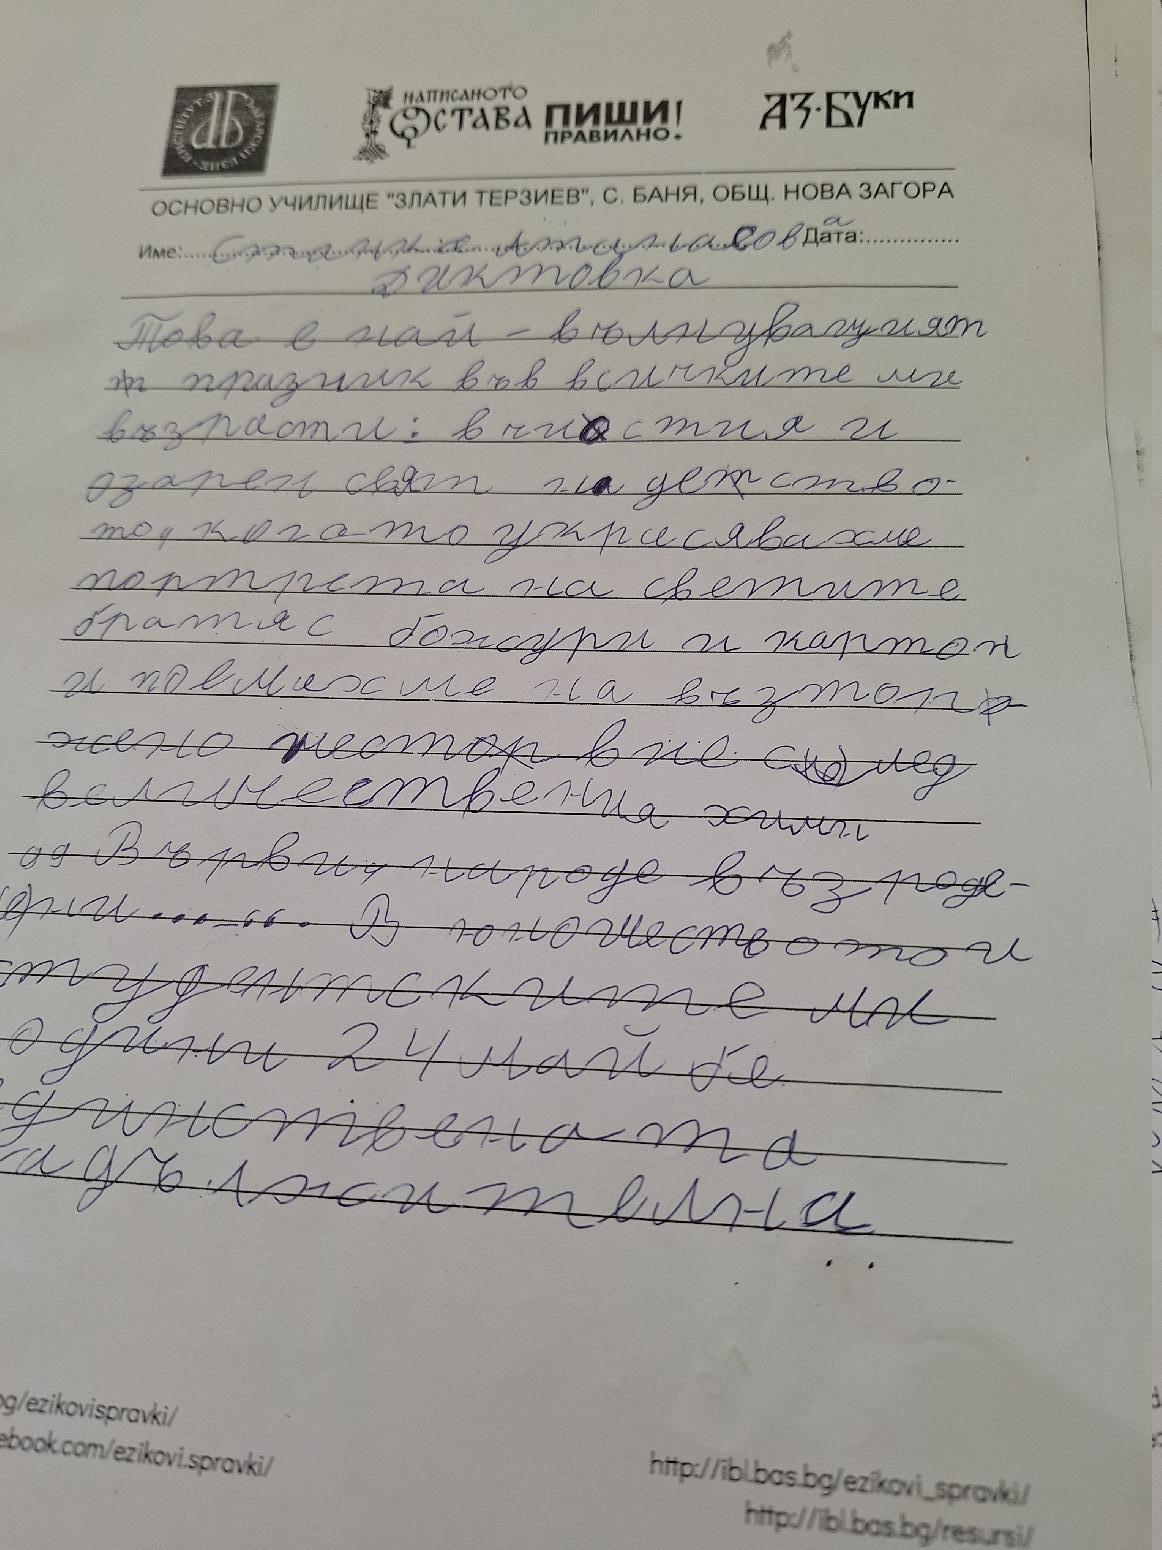 НАПИСАНОТО
ОСТАВА ПИШИ!
ПРАВИЛНО.
АЗ·БУКИ
ОСНОВНО УЧИЛИЩЕ "ЗЛАТИ ТЕРЗИЕВ", С. БАНЯ, ОБЩ. НОВА ЗАГОРА
Име: Дата:
Диктовка
Това е най-вълнуващият
празник във всичките ми
възрасти: в чистия и
озарен свят на детство-
то, когато украсявахме
портрета на светите
братя с божури и картон
и помахме на възтор
жено в не след
величествения химн
„Върви, народе възроде-
ни...... В юношеството и
студентските ми
одини 24 май бе
динствената
адължителна
og/ezikovispravki/
ebook.com/ezikovi.spravki/
http://ibl.bas.bg/ezikovi_spravki/
http://ibl.bas.bg/resursi/